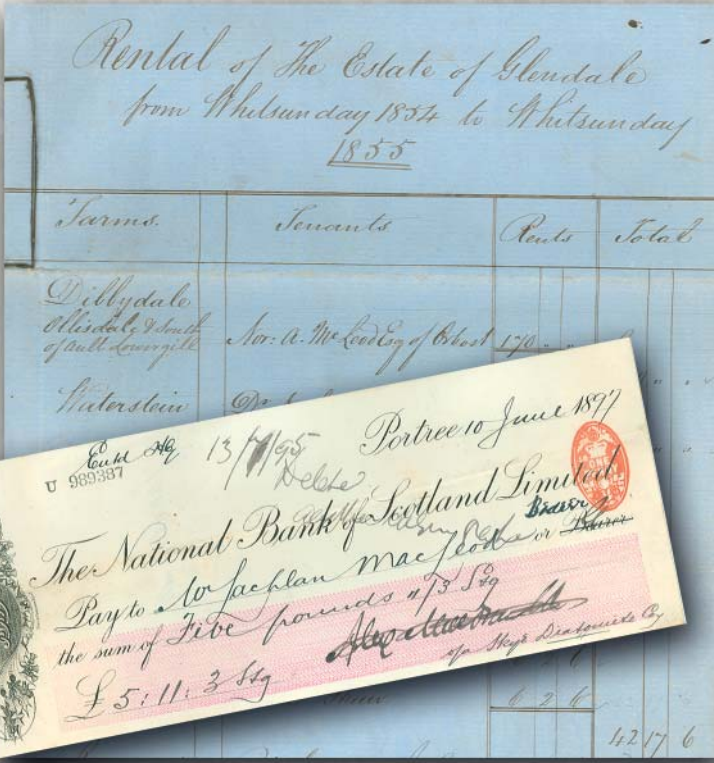 Rental of The Estate of Glendale
from Whitsunday 1854 to Whitsunday
1855
Farms. Tenants Rents Total
Dibbydale
Ollisdale & South
of Ault Lowergill Nor: A. McLeod Esq of Orbost 170 " "
Waterstein
Entd
U 989387
13/7/95
Portree 10 June 1897
The National Bank of Scotland Limited
Pay to Mr Lachlan MacLeod or Bearer
the sum of Five pounds 11/3 Stg
£ 5:11:3 Stg
Skye Diatomite Coy
6 2 6
42 17 6